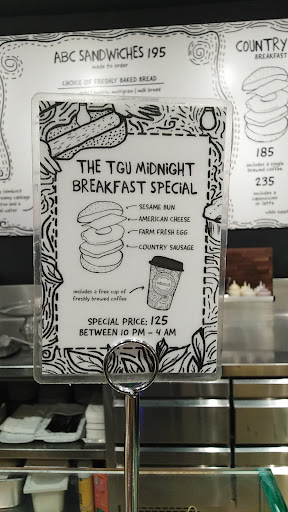 ABC SANDWICHES 195
made to order
CHOICE OF FRESHLY BAKED BREAD
multigrain | milk bread
COUNTRY
BREAKFAST
185
includes a single
brewed coffee
235
includes a
cappuccino
or latte
THE TGU MIDNIGHT
BREAKFAST SPECIAL
SESAME BUN
AMERICAN CHEESE
FARM FRESH EGG
COUNTRY SAUSAGE
includes a free cup of
freshly brewed coffee
SPECIAL PRICE: 125
BETWEEN 10 PM – 4 AM